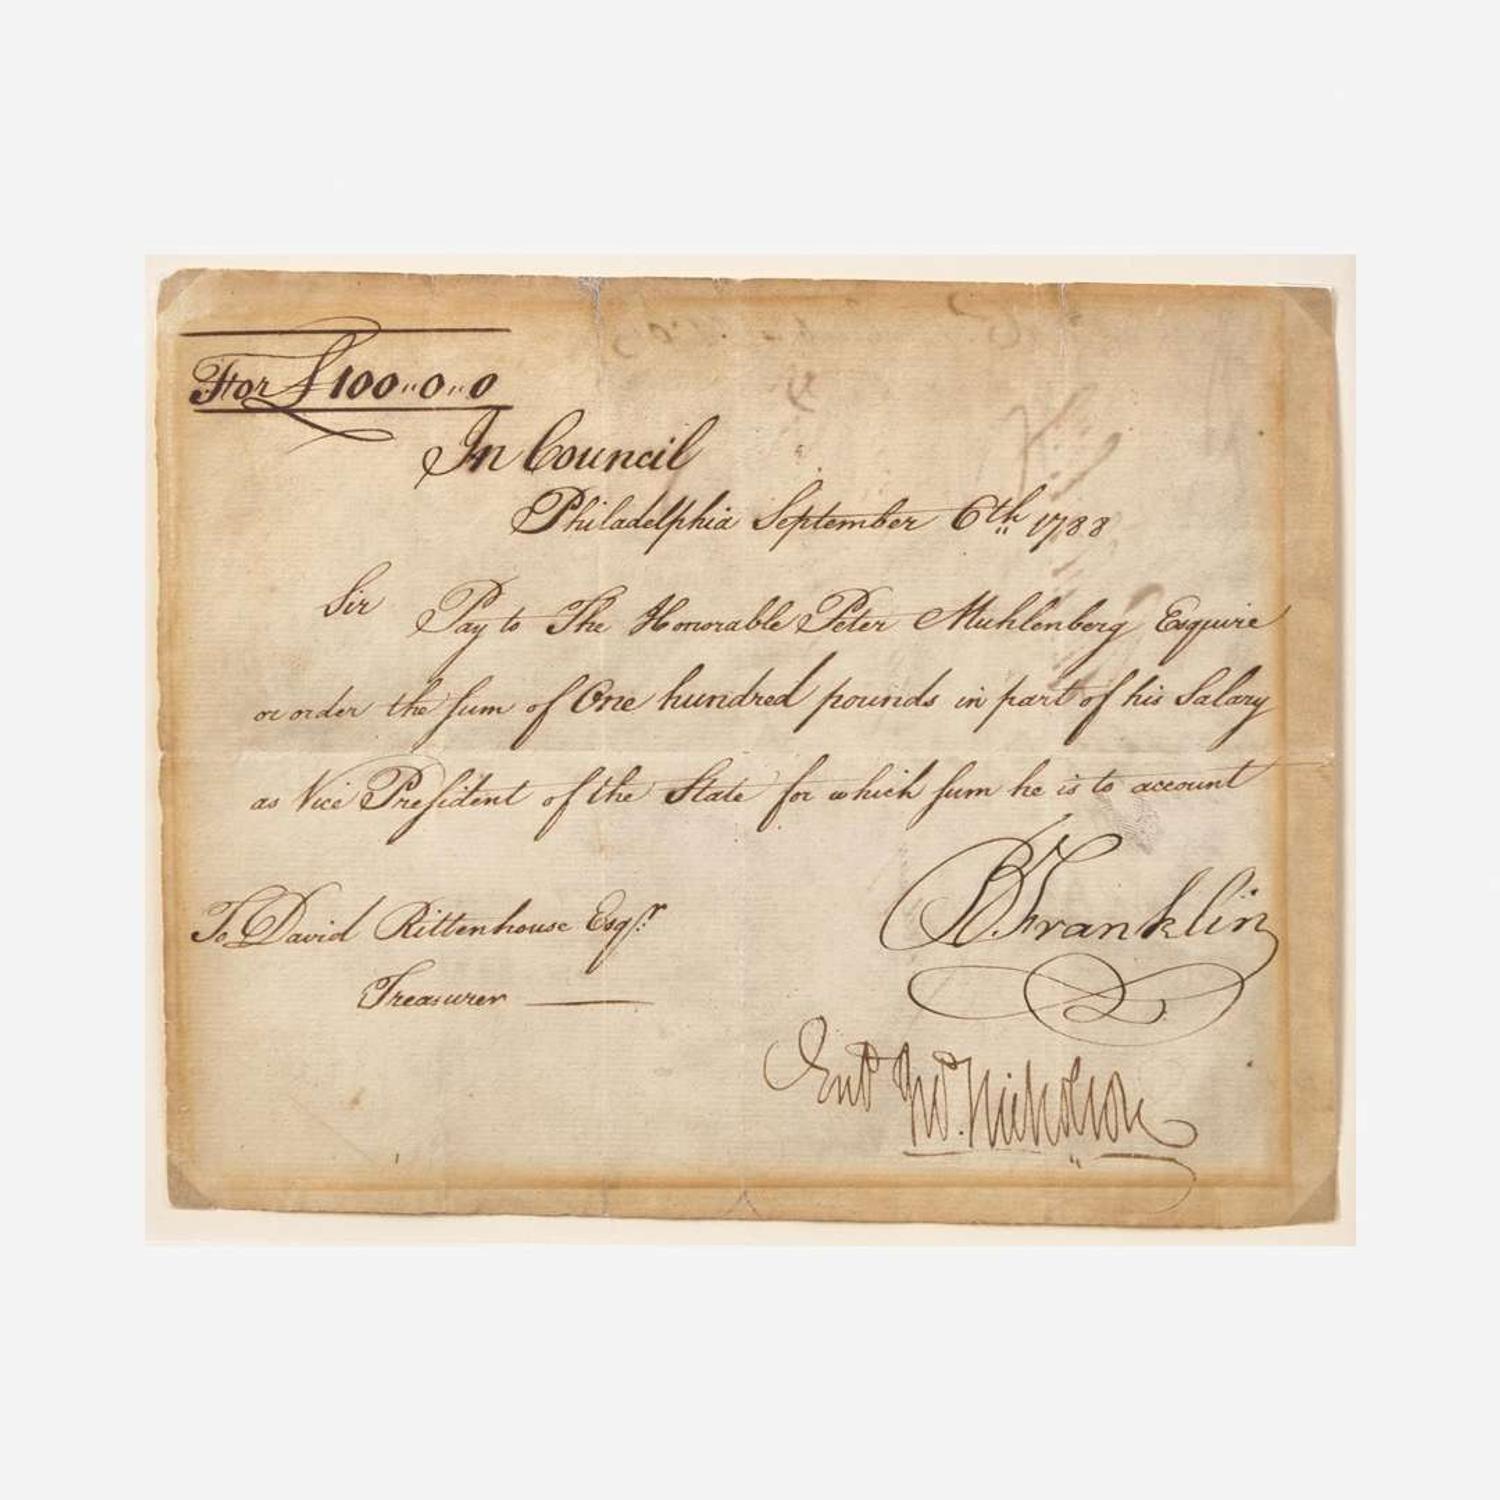 For £100..0..0
In Council
Philadelphia September 6th 1788
Sir Pay to The Honorable Peter Muhlenberg Esquire
or order the sum of One hundred pounds in part of his Salary
as Vice President of the State for which sum he is to account
B Franklin
To David Rittenhouse Esqr.
Treasurer
Entd Jno. Nicholson